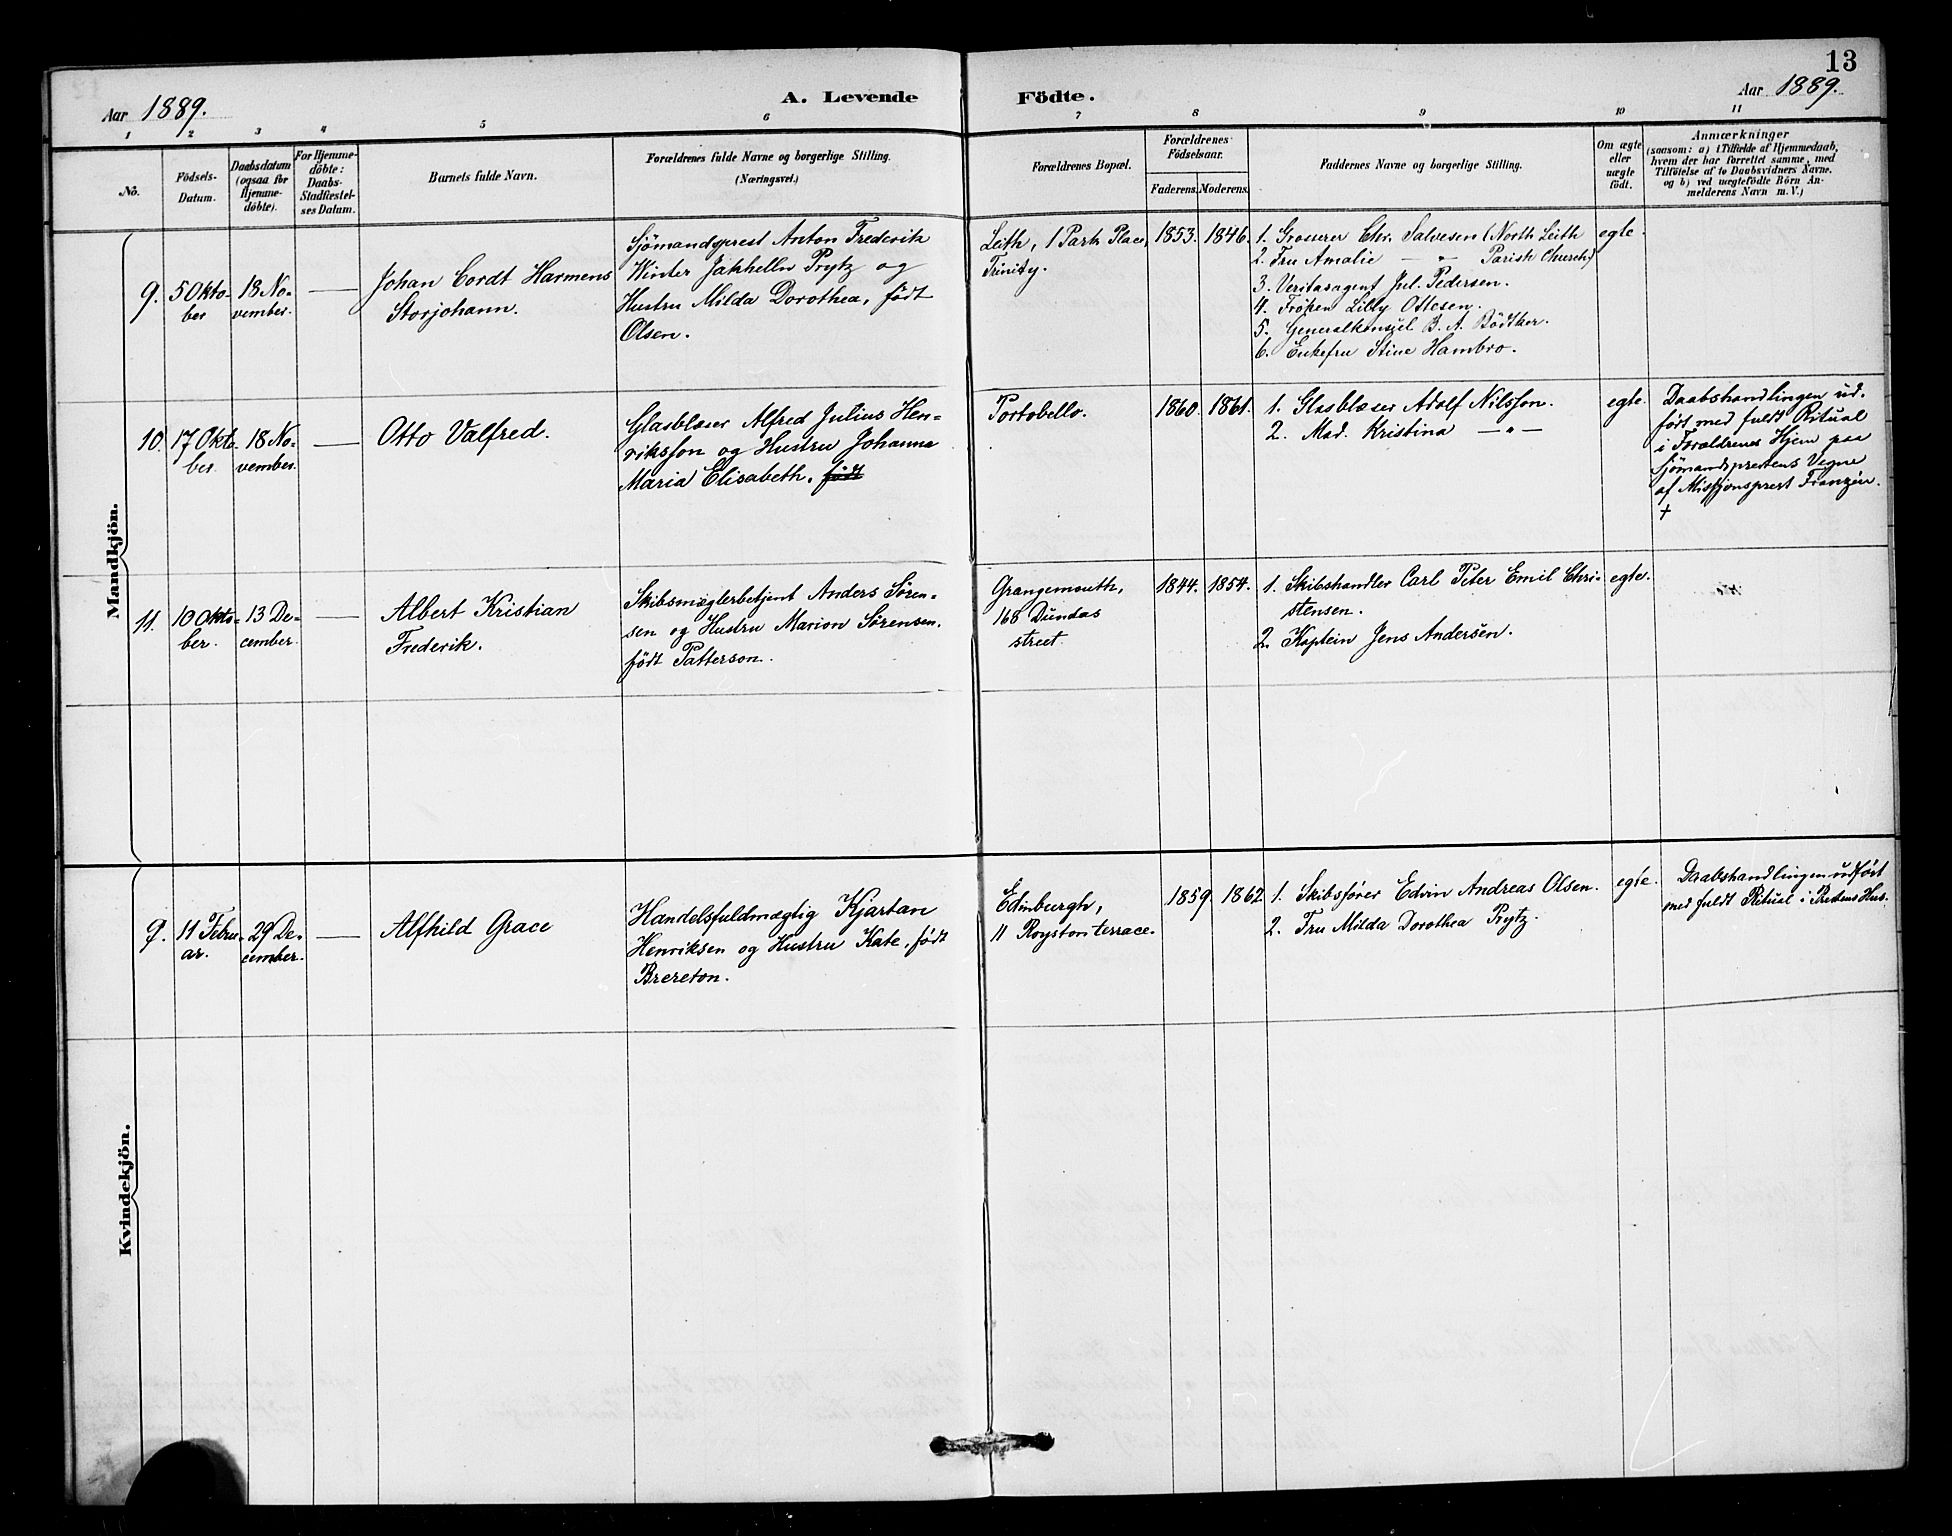 13
Aar 1889.
A. Levende Födte.
Aar 1889.
1 2 3 4 5 6 7 8 9 10 11
No.
Födsels-
Datum.
Daabsdatum
(ogsaa for
Hjemme-
döbte).
For Hjemme-
döbte:
Daabs-
Stadfæstel-
ses Datum.
Barnets fulde Navn.
Forældrenes fulde Navne og borgerlige Stilling.
(Næringsvei.)
Forældrenes Bopæl.
Forældrenes
Födselsaar.
Faderens. Moderens.
Faddernes Navne og borgerlige Stilling.
Om ægte
eller
uægte
födt.
Anmærkninger
(saasom: a) i Tilfælde af Hjemmedaab,
hvem der har forrettet samme, med
Tilföielse af to Daabsvidners Navne.
og b) ved uægtefödte Börn An-
melderens Navn m. V.)
Mandkjön.
9.
5 Okto-
ber
18 No-
vember.
Johan Cordt Harmens
Storjohann.
Sjömandsprest Anton Frederik
Winter Jakhelln Prytz og
Hustru Milda Dorothea, födt
Olsen.
Leith, 1 Park Place,
Trinity.
1853. 1846.
1. Grosserer Chr. Salvesen (North Leith
2. Fru Amalie — " — Parish Church)
3. Veritasagent Jul. Pedersen.
4. Fröken Lilly Ottesen.
5. Generalkonsul B. A. Bödtker.
6. Enkefru Stine Hambro.
egte.
10.
17 Okto-
ber.
18 No-
vember.
Otto Valfred.
Glasblæser Alfred Julius Hen-
riksson og Hustru Johanna
Maria Elisabeth, födt
Portobello.
1860. 1861.
1. Glasblæser Adolf Nilsson.
2. Mad. Kristina — " —
egte.
Daabshandlingen ud-
fört med fuldt Ritual
i Forældrenes Hjem paa
Sjömandsprestens Vegne
af Missionsprest Franzén.
+
11.
10 Okto-
ber.
13 De-
cember.
Albert Kristian
Frederik.
Skibsmæglerbetjent Anders Sören-
sen og Hustru Marion Sörensen,
födt Patterson.
Grangemouth,
168 Dundas
street.
1844. 1854.
1. Skibshandler Carl Peter Emil Chri-
stensen.
2. Kaptein Jens Andersen.
egte.
Kvindekjön.
9.
11 Febru-
ar.
29 De-
cember.
Alfhild Grace
Handelsfuldmægtig Kjartan
Henriksen og Hustru Kate, födt
Brereton.
Edinburgh,
11 Royston terrace.
1859. 1862
1. Skibsförer Edvin Andreas Olsen.
2. Fru Milda Dorothea Prytz.
egte.
Daabshandlingen udfört
med fuldt Ritual i Prestens Hus.